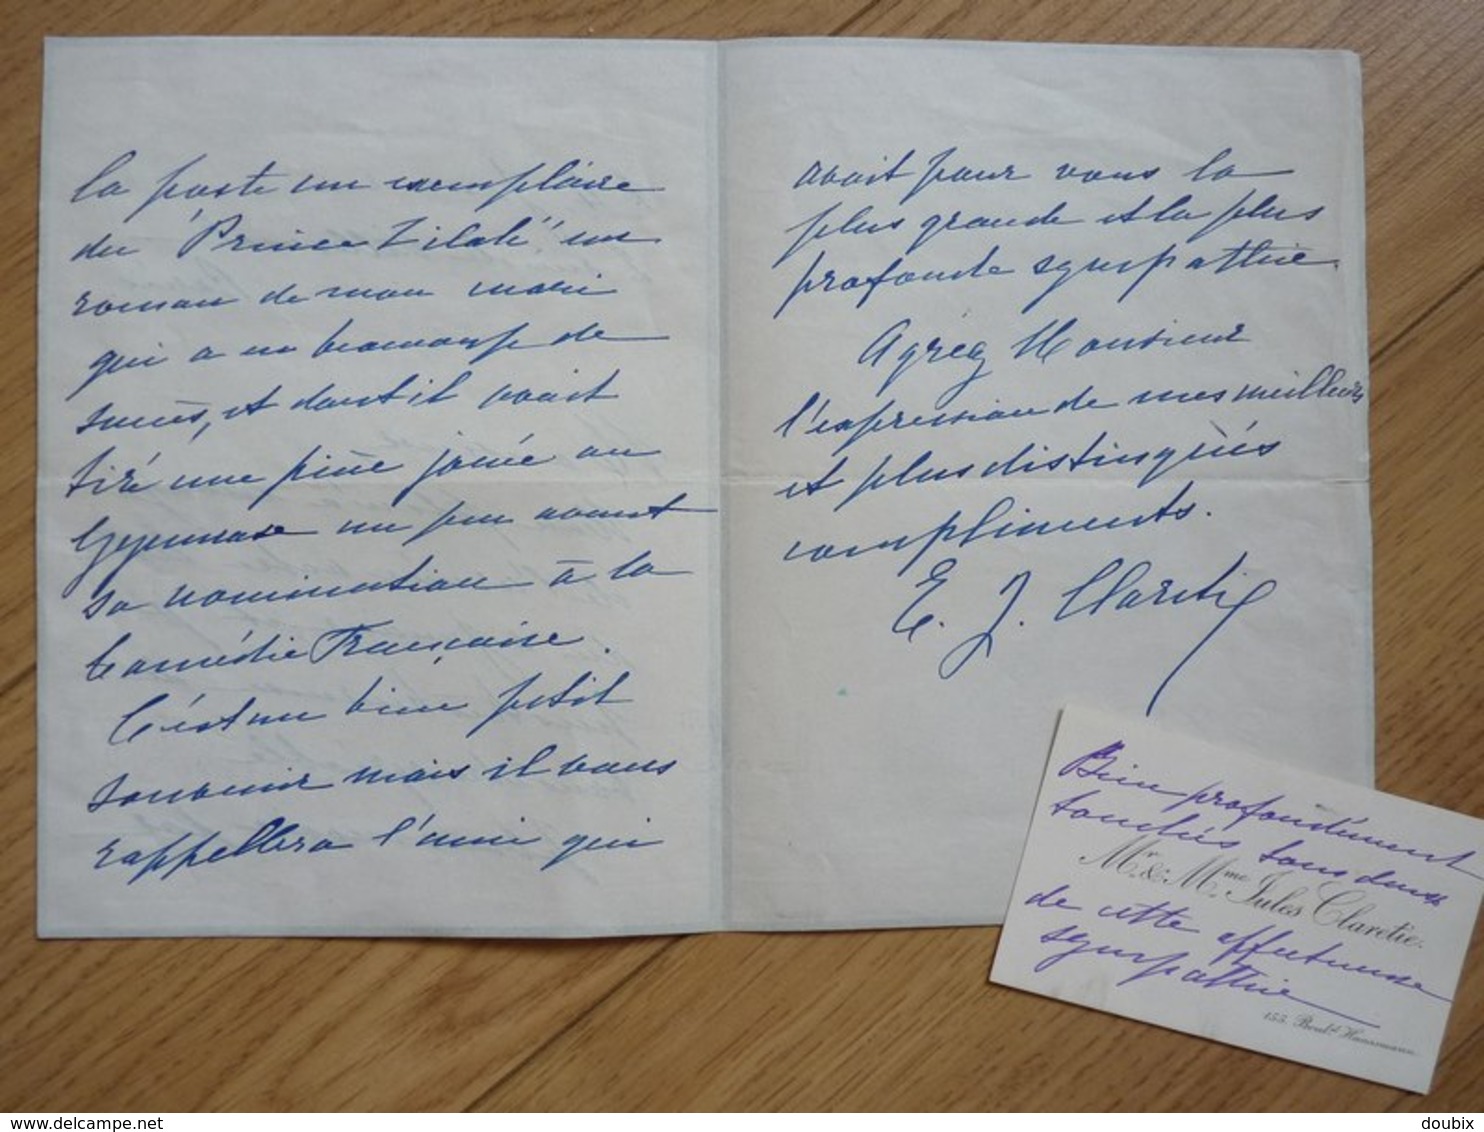 la poste un exemplaire
du "Prince Zilah" un
roman de mon mari
qui a eu beaucoup de
succès, et dont il avait
tiré une pièce jouée au
Gymnase un peu avant
sa nomination à la
Comédie Française.
C'est un bien petit
souvenir mais il vous
rappellera l'ami qui
avait pour vous la
plus grande et la plus
profonde sympathie.
Agréez Monsieur
l'expression de mes meilleurs
et plus distingués
compliments.
E. J. Claretie
Bien profondément
touchés tous deux
Mr. & Mme Jules Claretie.
de cette affectueuse
sympathie
155. Bould. Haussmann.
www.delcampe.net
doubix